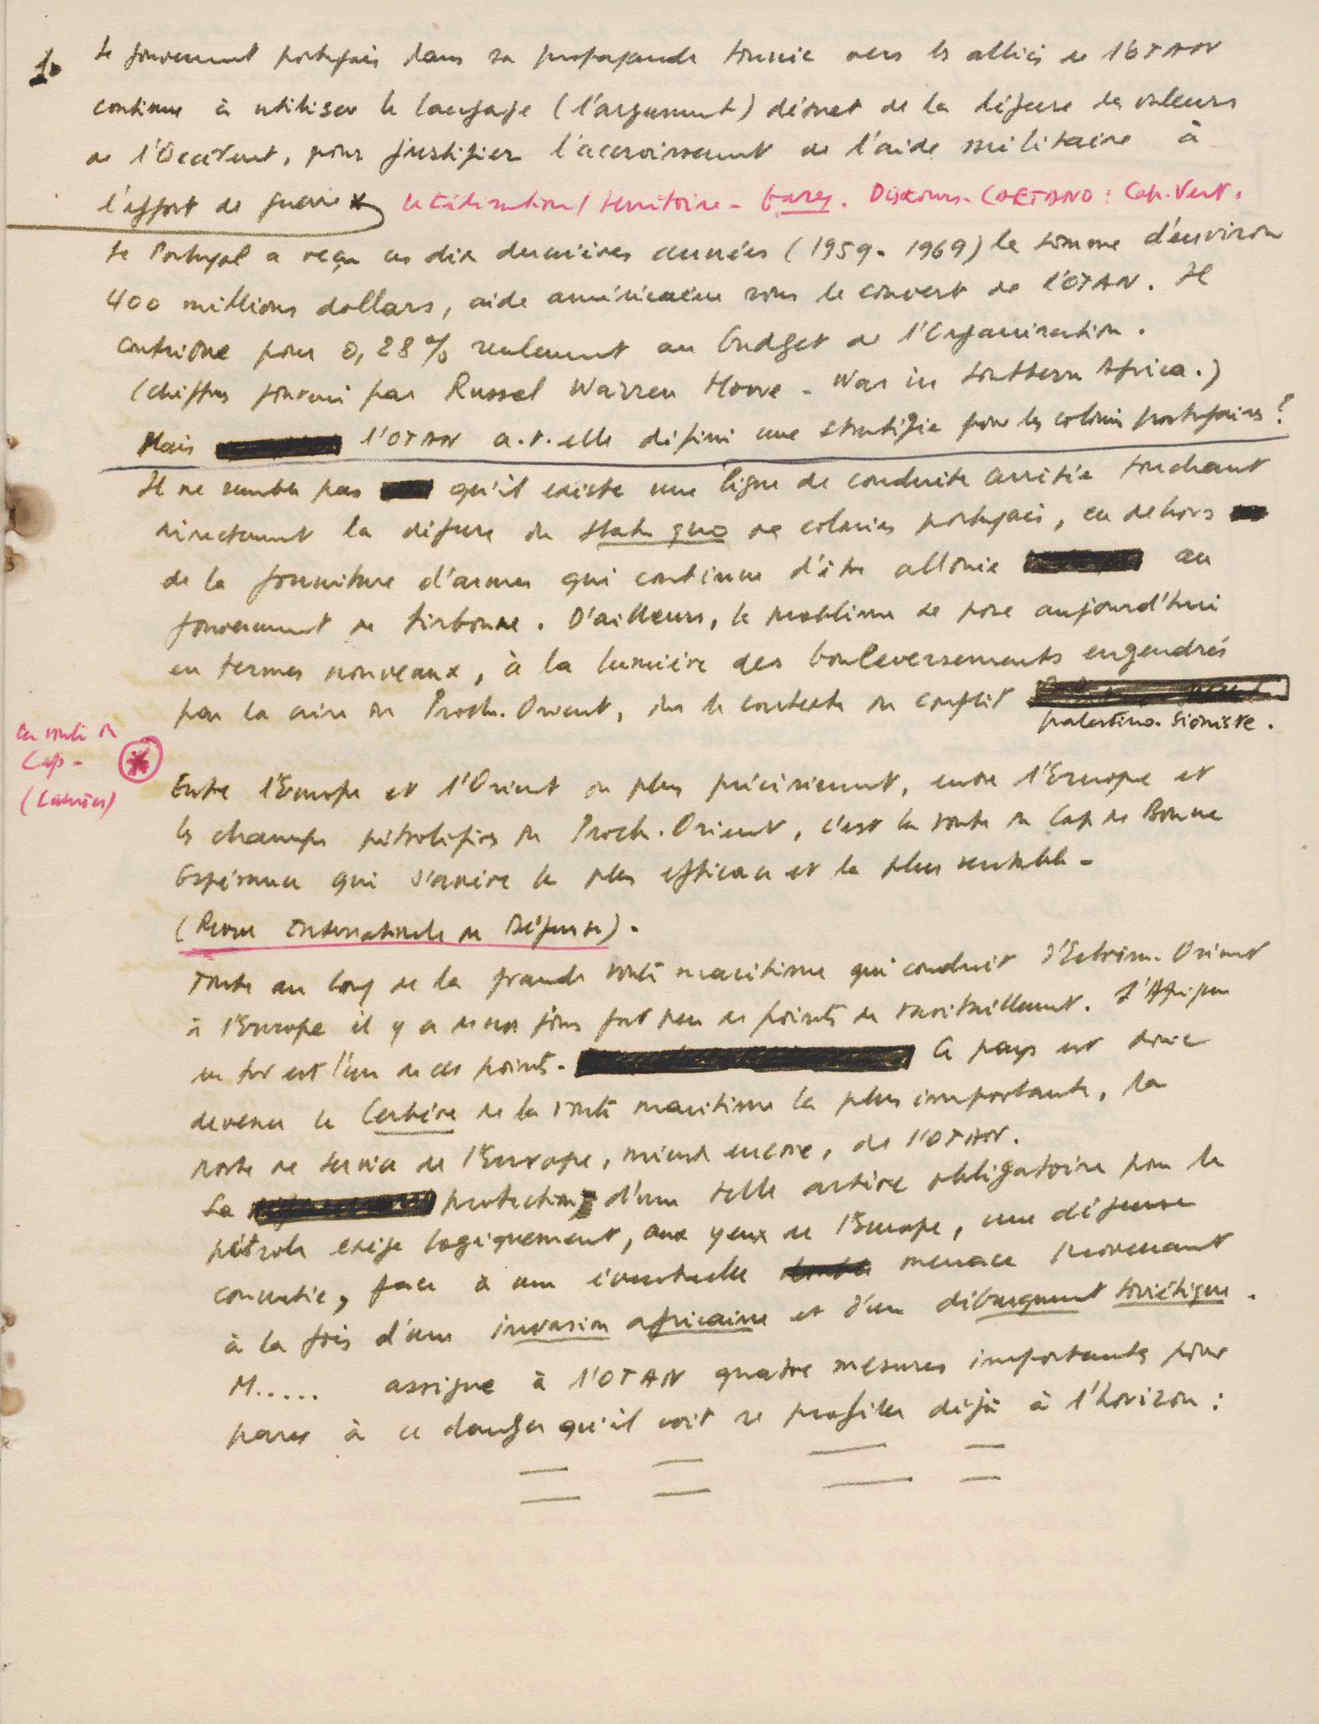 1. Le gouvernement portugais dans sa propagande tournée vers les alliés de l'OTAN
continue à utiliser le langage (l'argument) désuet de la défense des valeurs
de l'Occident, pour justifier l'accroissement de l'aide militaire à
l'effort de guerre utilisation / territoire - bases. Discours. CAETANO : Cap. Vert.
Le Portugal a reçu ces dix dernières années (1959-1969) la somme d'environ
400 millions dollars, aide américaine sous le couvert de l'OTAN. Il
contribue pour 0,28% seulement au budget de l'Organisation.
(chiffres fourni par Russel Warren Howe - War in Southern Africa.)
Mais l'OTAN a-t-elle défini une stratégie pour les colonies portugaises ?
Il ne semble pas qu'il existe une ligne de conduite arrêtée touchant
directement la défense du statu quo de colonies portugais, en dehors
de la fourniture d'armes qui continue d'être allouée au
gouvernement de Lisbonne. D'ailleurs, le problème se pose aujourd'hui
en termes nouveaux, à la lumière des bouleversements engendrés
par la crise du Proche-Orient, du contexte du conflit
palestino-sioniste.
La route du
Cap-
Entre l'Europe et l'Orient ou plus précisément, entre l'Europe et
les champs pétrolifères du Proche-Orient, c'est la route du Cap de Bonne
Espérance qui s'avère la plus efficace et la plus rentable-
(Revue Internationale de Défense).
Toute au long de la grande route maritime qui conduit d'Extrême-Orient
à l'Europe il y a de nos jours fort peu de points de ravitaillement. L'Afrique
du Sud est l'un de ces points. Ce pays est donc
devenu le Cerbère de la route maritime la plus importante, la
porte de service de l'Europe, mieux encore, de l'OTAN.
La protection d'une telle artère obligatoire pour le
pétrole exige logiquement, aux yeux de l'Europe, une défense
concertée, face à une éventuelle menace provenant
à la fois d'une invasion africaine et d'un débarquement soviétique.
M..... assigne à l'OTAN quatre mesures importantes pour
parer à ce danger qu'il voit se profiler déjà à l'horizon :